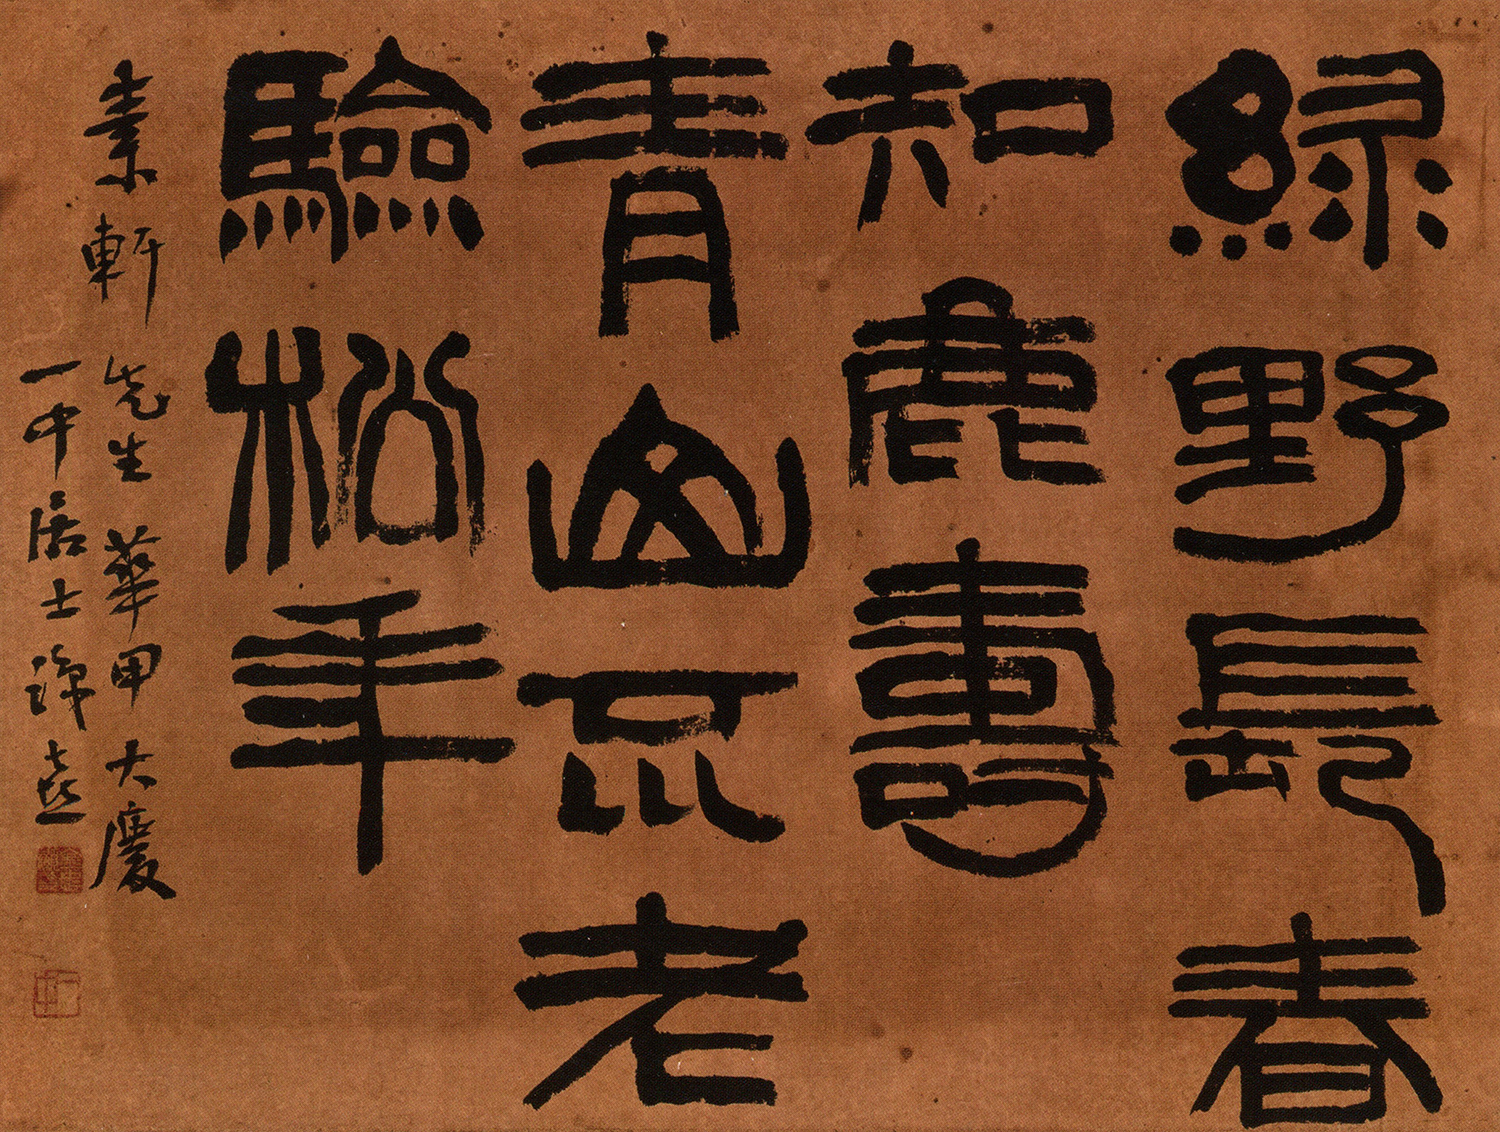 綠野長春
知鹿壽
青山不老
驗松年
素軒先生華甲大慶
一中居士
一中